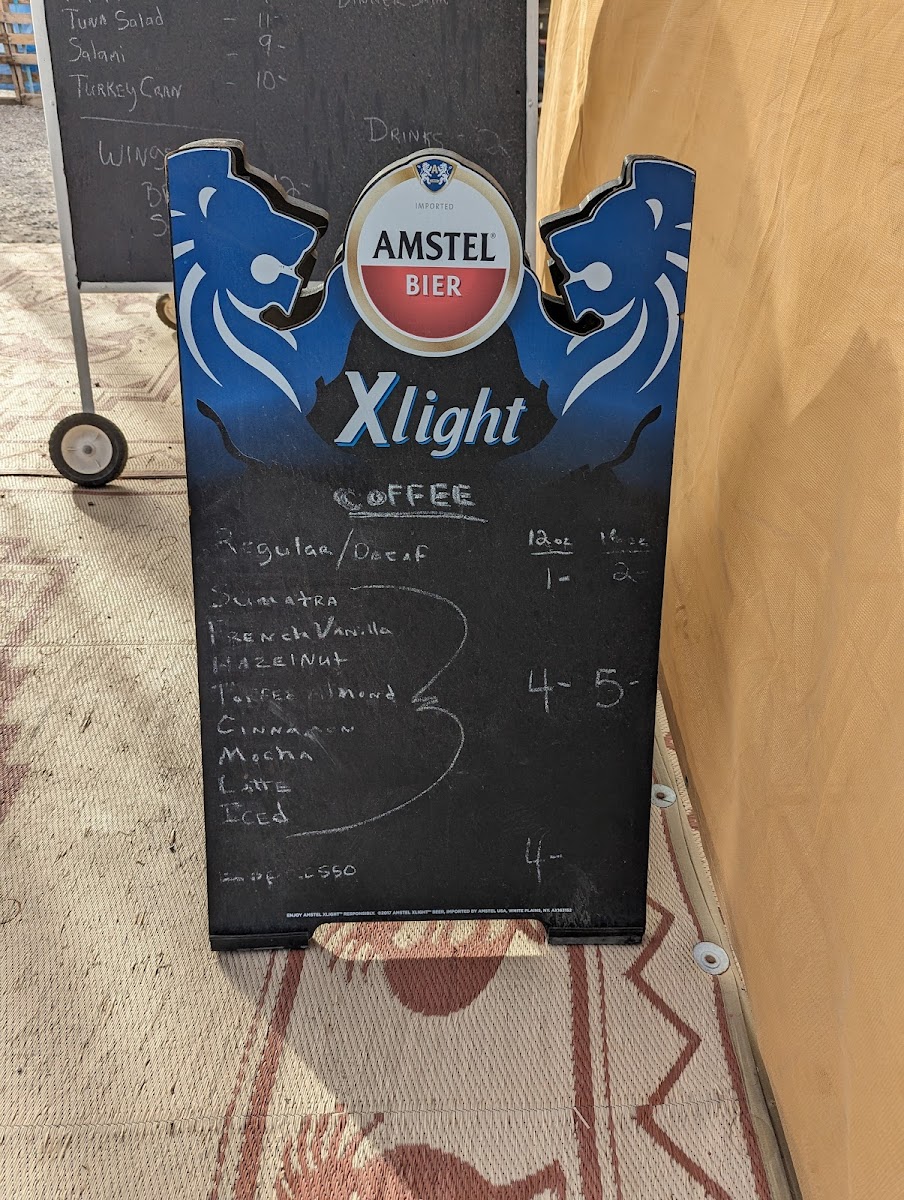 TUNA Salad - 11-
Salami - 9-
TURKEY CRAN - 10-
DRINKS - 2-
WINGS
12-
IMPORTED
AMSTEL®
BIER
Xlight
COFFEE
Regular/Decaf
12oz 16oz
1- 2-
SUMATRA
FRENCH Vanilla
HAZELNUT
TOFFEE Almond
4- 5-
CINNAMON
MOCHA
LATTE
ICED
4-
ESPRESSO
ENJOY AMSTEL XLIGHT™ RESPONSIBLY. ©2017 AMSTEL XLIGHT™ BEER, IMPORTED BY AMSTEL USA, WHITE PLAINS, NY.